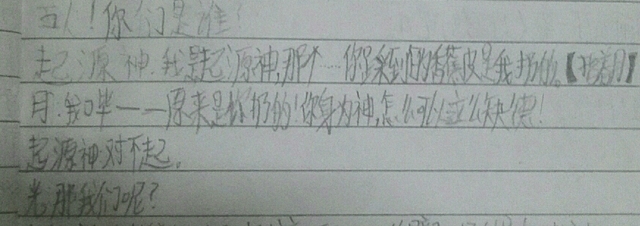 五人！你们是谁！
起源神：我是起源神，那个……你踩到的香蕉皮是我扔的。【捂着眼】
月：我口毕——原来是你扔的！你身为神，怎么可以这么缺德！
起源神：对不起。
光：那我们呢？